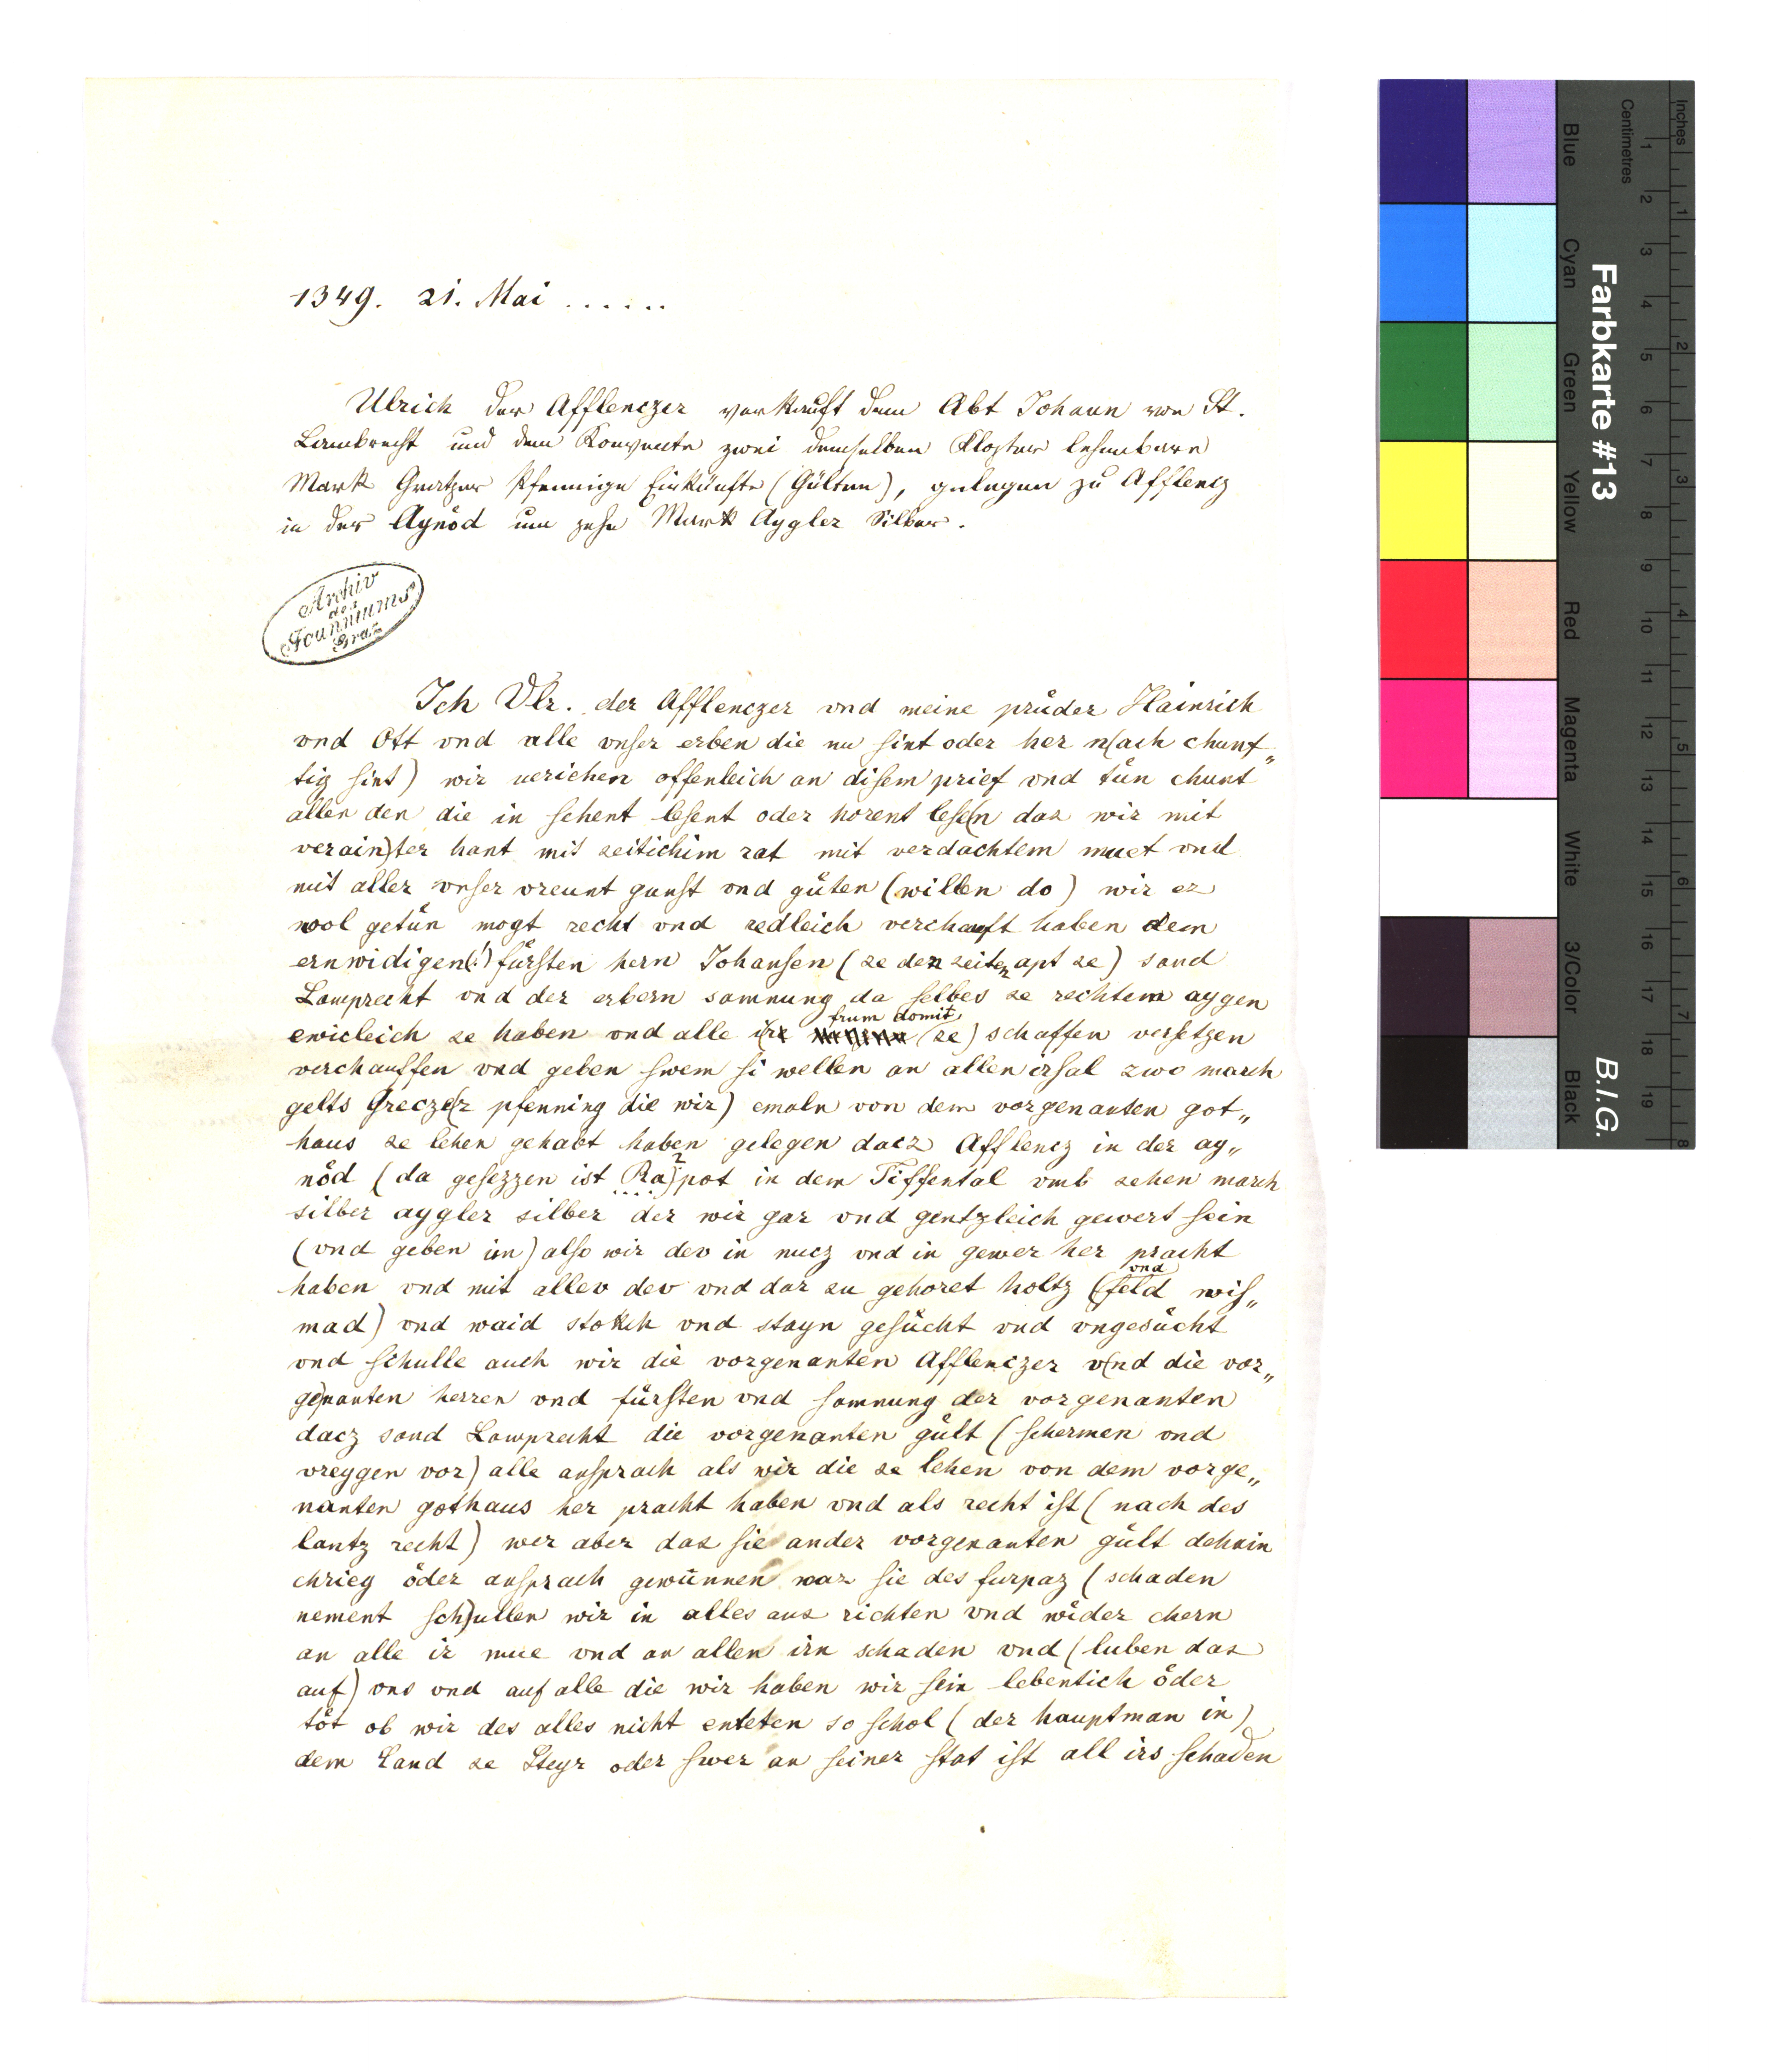 1349. 21. Mai ......
Ulrich der Afflenczer verkauft dem Abt Johann von St.
Lambrecht und dem Konvente zwei demselben Kloster lehenbare
Mark Gratzer Pfennige Einkünfte (Gülten), gelegen zu Afflencz
in der Aynöd um zehn Mark Aygler Silber.
Archiv
des
Joanneums
Graz
Ich Vlr. der Afflenczer vnd meine prüder Hainrich
vnd Ott vnd alle vnser erben die nu sint oder her n(ach chunf„
tig sint) wir veriehen offenleich an disem prief vnd tün chunt
allen den die in sehent lesent oder horent lese(n daz wir mit
verain)ter hant mit zeitichim rat mit verdachtem muet vnd
mit aller vnser vreunt gunst vnd güten (willen do) wir ez
wol getün mogt recht vnd redleich verchauft haben dem
ernwidigen(!) fürsten hern Johansen (ze den zeiten apt ze) sand
Lamprecht vnd der erbern samnung da selbes ze rechtem aygen
ewicleich ze haben vnd alle ire frum domit (ze) schaffen versetzen
verchauffen vnd geben swem si wellen an allen irsal zwo march
gelts Grecze(r pfenning die wir) emaln von dem vorgenanten got„
haus ze lehen gehabt haben gelegen dacz Afflencz in der ay„
nöd (da gesezzen ist Ra)2pot in dem Tiffental vmb zehen march
silber aygler silber der wir gar vnd gentzleich gewert sein
(vnd geben im) also wir dev in nucz vnd in gewer her pracht
haben vnd mit allev dev vnd dar zu gehoret holtz (vnd feld wis„
mad) vnd waid stokch vnd stayn gesücht vnd vngesücht
vnd schulle auch wir die vorgenanten Afflenczer v(nd die vor„
ge)nanten herren vnd fürsten vnd samnung der vorgenanten
dacz sand Lamprecht die vorgenanten gült (schermen vnd
vreygen vor) alle ansprach als wir die ze lehen von dem vorge„
nanten gothaus her pracht haben vnd als recht ist (nach des
lantz recht) wer aber daz sie an der vorgenanten gült dehain
chrieg öder ansprach gewünnen waz sie des furpaz (schaden
nement sch)ullen wir in alles aus richten vnd wider chern
an alle ir mue vnd an allen irn schaden vnd (luben daz
auf) vns vnd auf alle die wir haben wir sein lebentich öder
töt ob wir des alles nicht enteten so schol (der hauptman in)
dem Land ze Steyr oder swer an seiner stat ist all irs schaden
Inches
Centimetres
Farbkarte #13
B.I.G.
Blue
Cyan
Green
Yellow
Red
Magenta
White
3/Color
Black
1 2 3 4 5 6 7 8 9 10 11 12 13 14 15 16 17 18 19
1 2 3 4 5 6 7 8